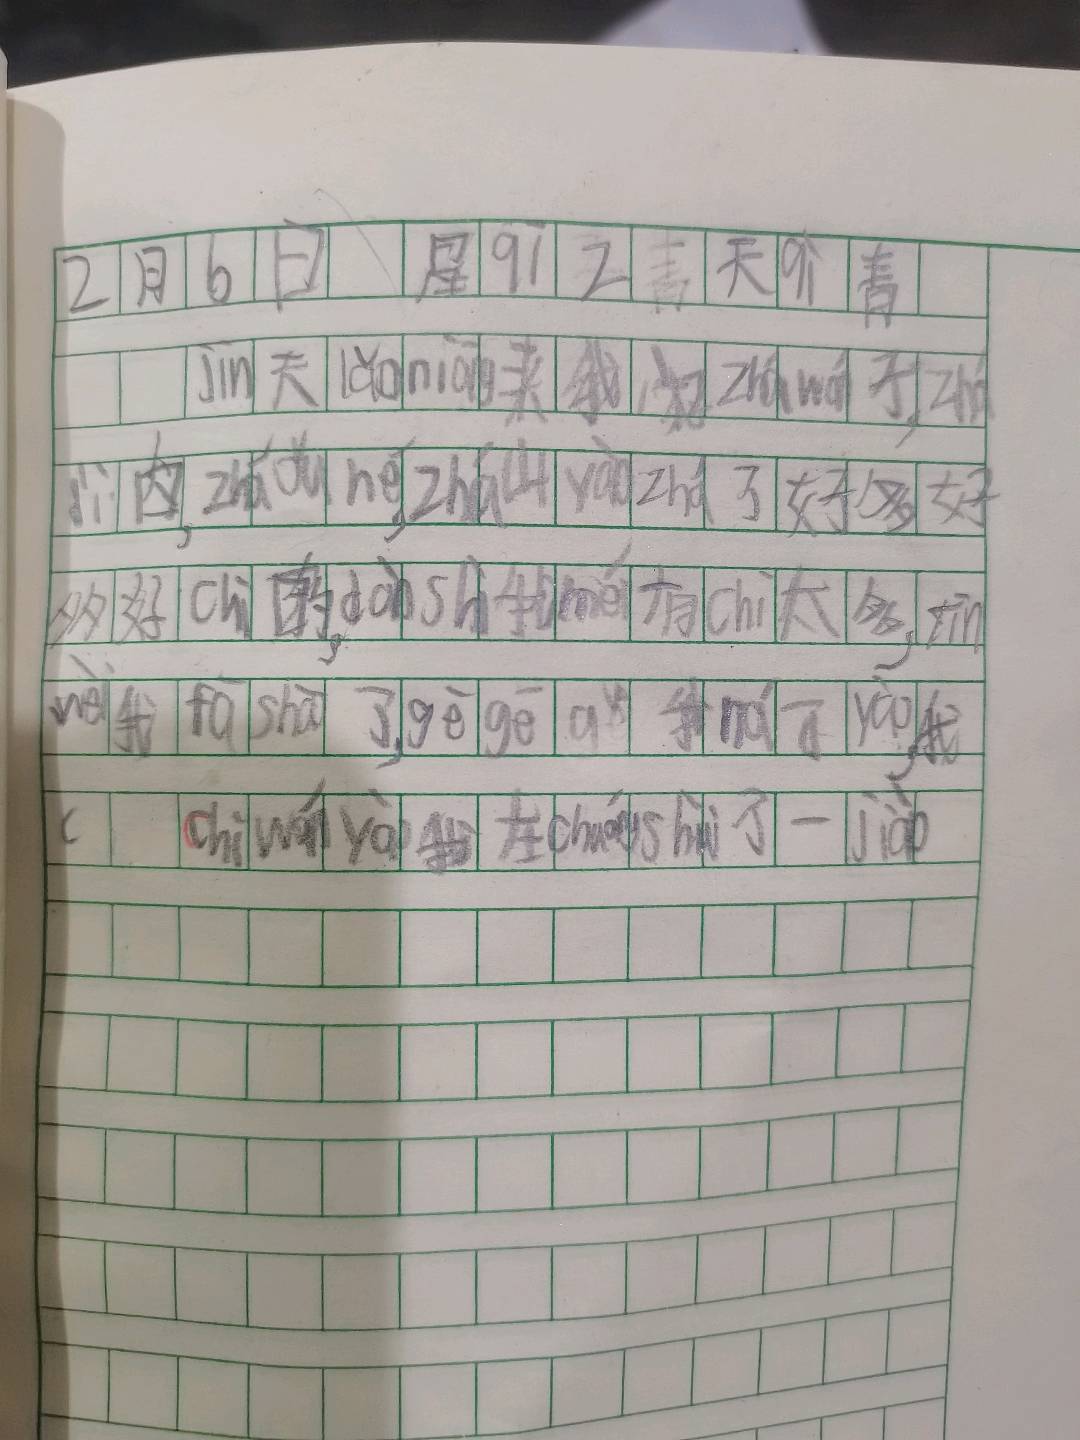 2月6日 星qī 乙 青 天qì 青
jīn天lǎoniáng来我家zháwán子,zhá
jī肉,zháduné,zháyào zhá了好多好
多好chī的,dànshì我méi有chī太多,tīn
我fāshāo了,gēgē我ná了yào,我
chīwányào我在chuángshuì了一jiào